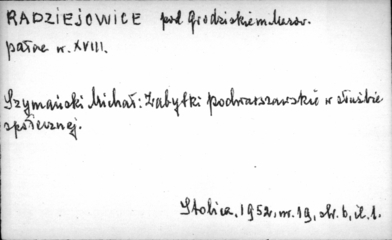 RADZIEJOWICE pod Grodziskiem Mazow.
pałac w. XVIII.
Szymański Michał: Zabytki podwarszawskie w służbie
społecznej.
Stolica, 1952, nr. 19, str. 6, il. 1.